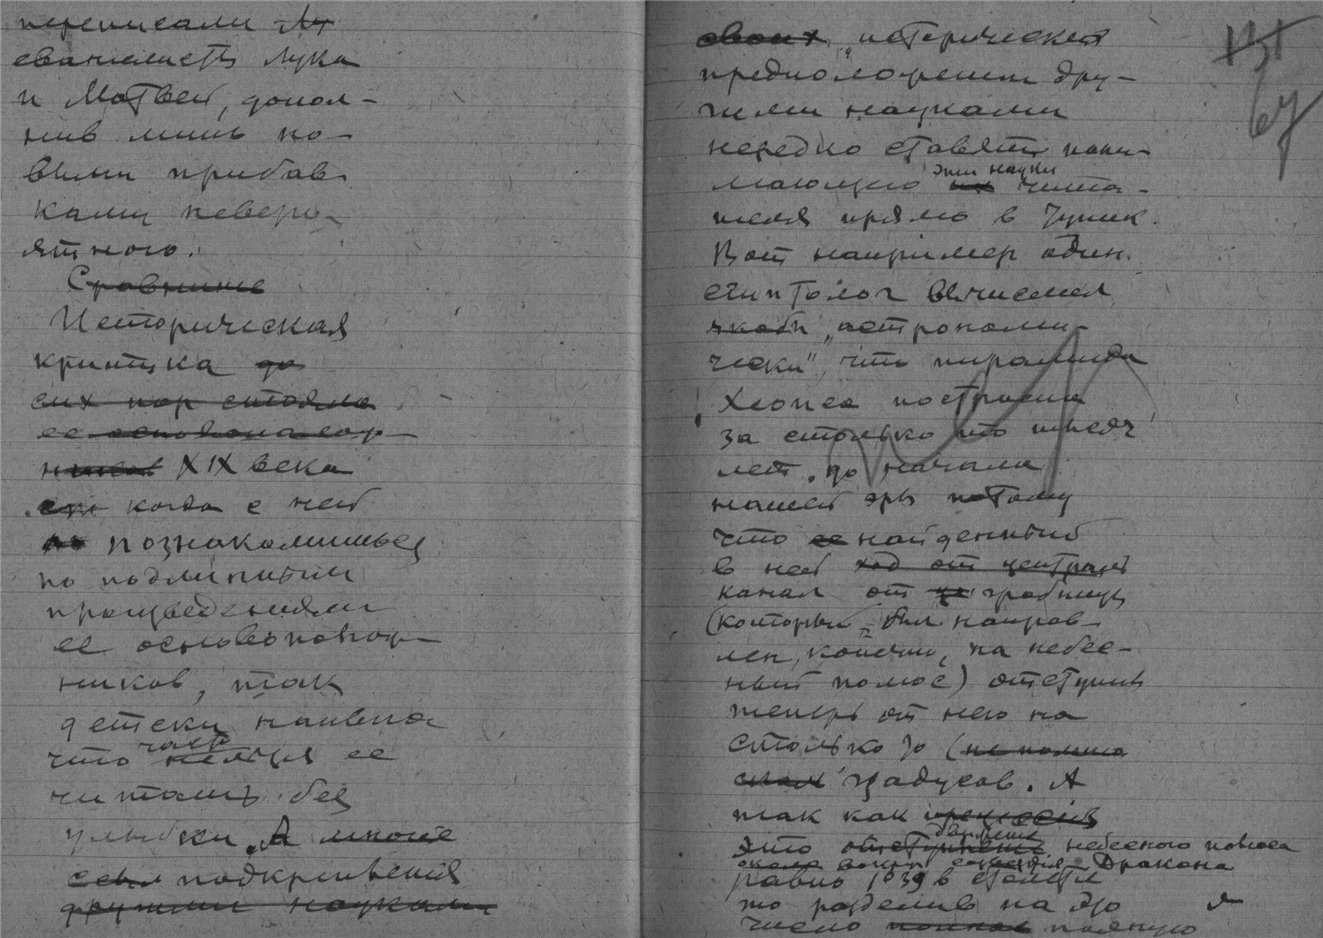 переписали Лу
евангелисты Лука
и Матвей, допол-
нив лишь но-
выми прибав-
ками неверо-
ятного.
Сравнение
Историческая
критика до
сих пор стояла
ее основополож-
ников XIX века
когда с ней
познакомишься
по подлинным
произведениям
ее основополож-
ников, так
детски наивна
что часто нельзя ее
читать без
улыбки. А многие
сами подкрепления
другими науками
своих "исторических
предположений дру-
гими науками
нередко ставят пони-
мающего их эти науки чита-
теля прямо в тупик.
Вот например один
египтолог вычислил
якобы „астрономи-
чески", что пирамида
Хеопса построена
за столько то тысяч
лет до начала
нашей эры потому
что ее найденный
в ней ход от центра
канал от гробницы
(который был направ-
лен, конечно, на небес-
ный полюс) отступил
теперь от него на
столько то (не помню
градусов. А
так как прецессия
это отступление движение небесного полюса
около созвездия Дракона
равно 1°39 в столетие
то разделив на это
число полную
131
67